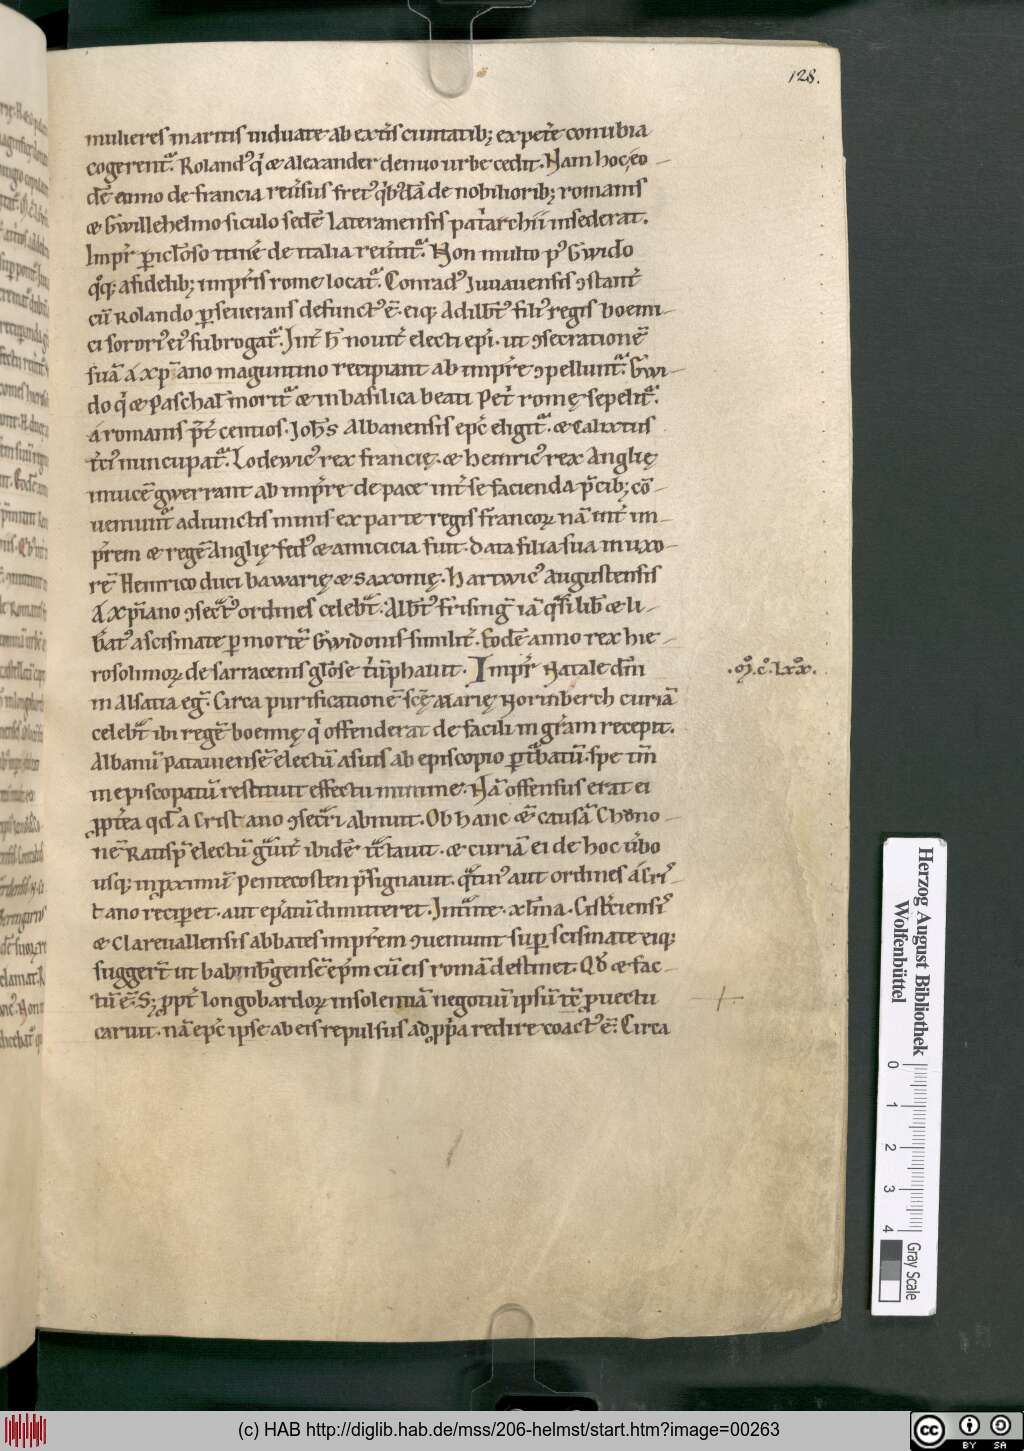 128.
mulieres maritis uiduate ab ext̄is ciuitatibꝫ expet̄e conubia
cogerentᷣ. Roland᷒ q̇ ⁊ Alexander denuo urbe cedit. Nam hoc eo-
dē anno de francia reu̇sus fret᷒ q̇bꝰdā de nobiliorib; romanis
æ Gwillehelmo siculo sedē lateranensis pat̄archii insederat.
Imp̄r ꝑiclōso itinē de italia reu̇titᷣ. Non multo p᷒ Gwido
q̊q; a fidelib; imp̄ris rome locatᷣ. Conrad᷒ Juuauensis ɔstant̄
cū Rolando ꝑseuerans defunct᷒ ē. eiq; Adilb̄t᷒ fili᷒ regis boemi-
ci sorori᷒ ei᷒ subrogatᷣ. Int̄ h̄ nouit̄ electi ep̄i. ut ɔsecrationē
suā á xp̄iano maguntino recipiant ab imp̄re ɔpelluntᷣ. Gwi-
do q̇ æ Paschal̄ moritᷣ æ in basilica beati Pet̄ romę sepelitᷣ.
á romanis p̄t̄ centios. Joh̄s Albanensis ep̄c eligitᷣ. æ Calixtus
t̄ci᷒ nuncupatᷣ. Lodewic᷒ rex francię. æ heinric᷒ rex Anglię
inuicē gwerrant ab imp̄re de pace int̄ se facienda p̄cib; cō-
ueniunt̄ adiunctis minis ex parte regis francoꝝ nā int̄ im-
p̄rem æ regē Anglię fed᷒ æ amicicia fuit. data filia sua in uxo-
rē Heinrico duci bawarię æ saxonię. hartwic᷒ augustensis
á xp̄iano ɔsecᷓt᷒ ordines celebᷓt. Alb̄t᷒ frisingᷓ iā qᷓsi lib̄ æ li-
b̄at᷒ a scismate ꝑ mortē Gwidonis similit̄. Eodē anno rex hie-
rosolimoꝝ de sarracenis glōse t̄iūphauit. Imp̄r Natale dn̄i
.m̊.c̊.lxx̊.
in Alsatia eg̅. Circa purificationē scę Marię Norinberch curiā
celebᷓt ibi regē boemię q̇ offenderat de facili in gr̄am recepit.
Albanū Patauiensē electū a suis ab episcopio ꝑtᷓbatū. spe tm̄
in episcopatū restituit effectu minime. Nā offensus erat ei
ꝓpt̄ea qd̄ a cristiano ɔsecᷓri abnuit. Ob hanc eā causā Chᷣono-
nē Ratisp̄ electū gᷓuit̄ ibidē tᷓctauit. æ curiā ei de hoc u̇bo
usq; in ꝓximū Pentecosten p̄signauit. qᷓtin᷒ aut ordines á cri᷒-
tiano reciperet. aut ep̄atū dimitteret. Int̄inte. xl̄ma. Cist̄ciensi᷒
æ Clareuallensis abbates imp̄rem ɔueniunt sup̄ scismate eiq;
suggert̄ ut babinb̄gensē ep̄m cū eis romā destinet. Qd̄ æ fac-
tū ē. Sꝫ ꝓpt̄ longobardoꝝ insolentiā negotiū ipsū tē ꝓuectu
caruit. nā ep̄c ipse ab eis repulsus ad ꝓpᷓa redire coact᷒ ē. Circa
Herzog August Bibliothek
Wolfenbüttel
0 1 2 3 4
Gray Scale
(c) HAB http://diglib.hab.de/mss/206-helmst/start.htm?image=00263
cc BY SA